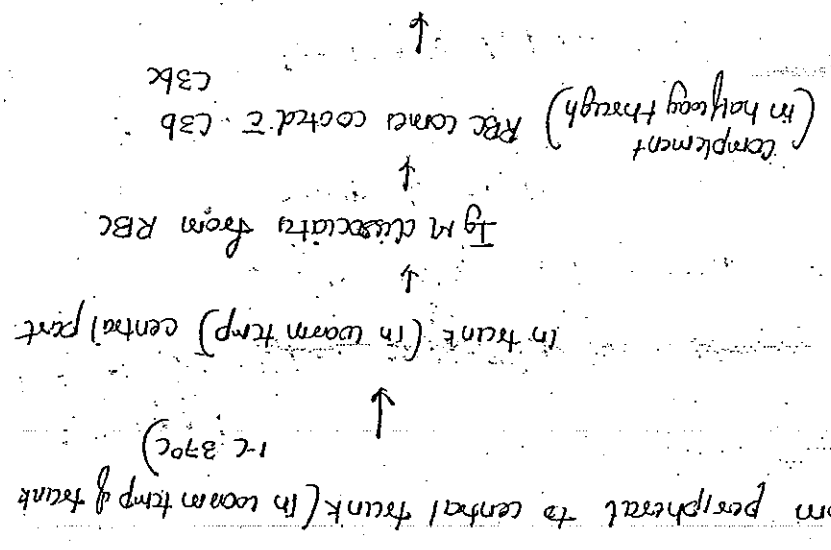 om peripheral to central trunk (in warm temp of trunk
i.e 37°C)
↓
in trunk (in warm temp) central part
↓
IgM dissociats from RBC
↓
(complement
in halfway through) RBC comes coated c̄ C3b
C3bc
↓